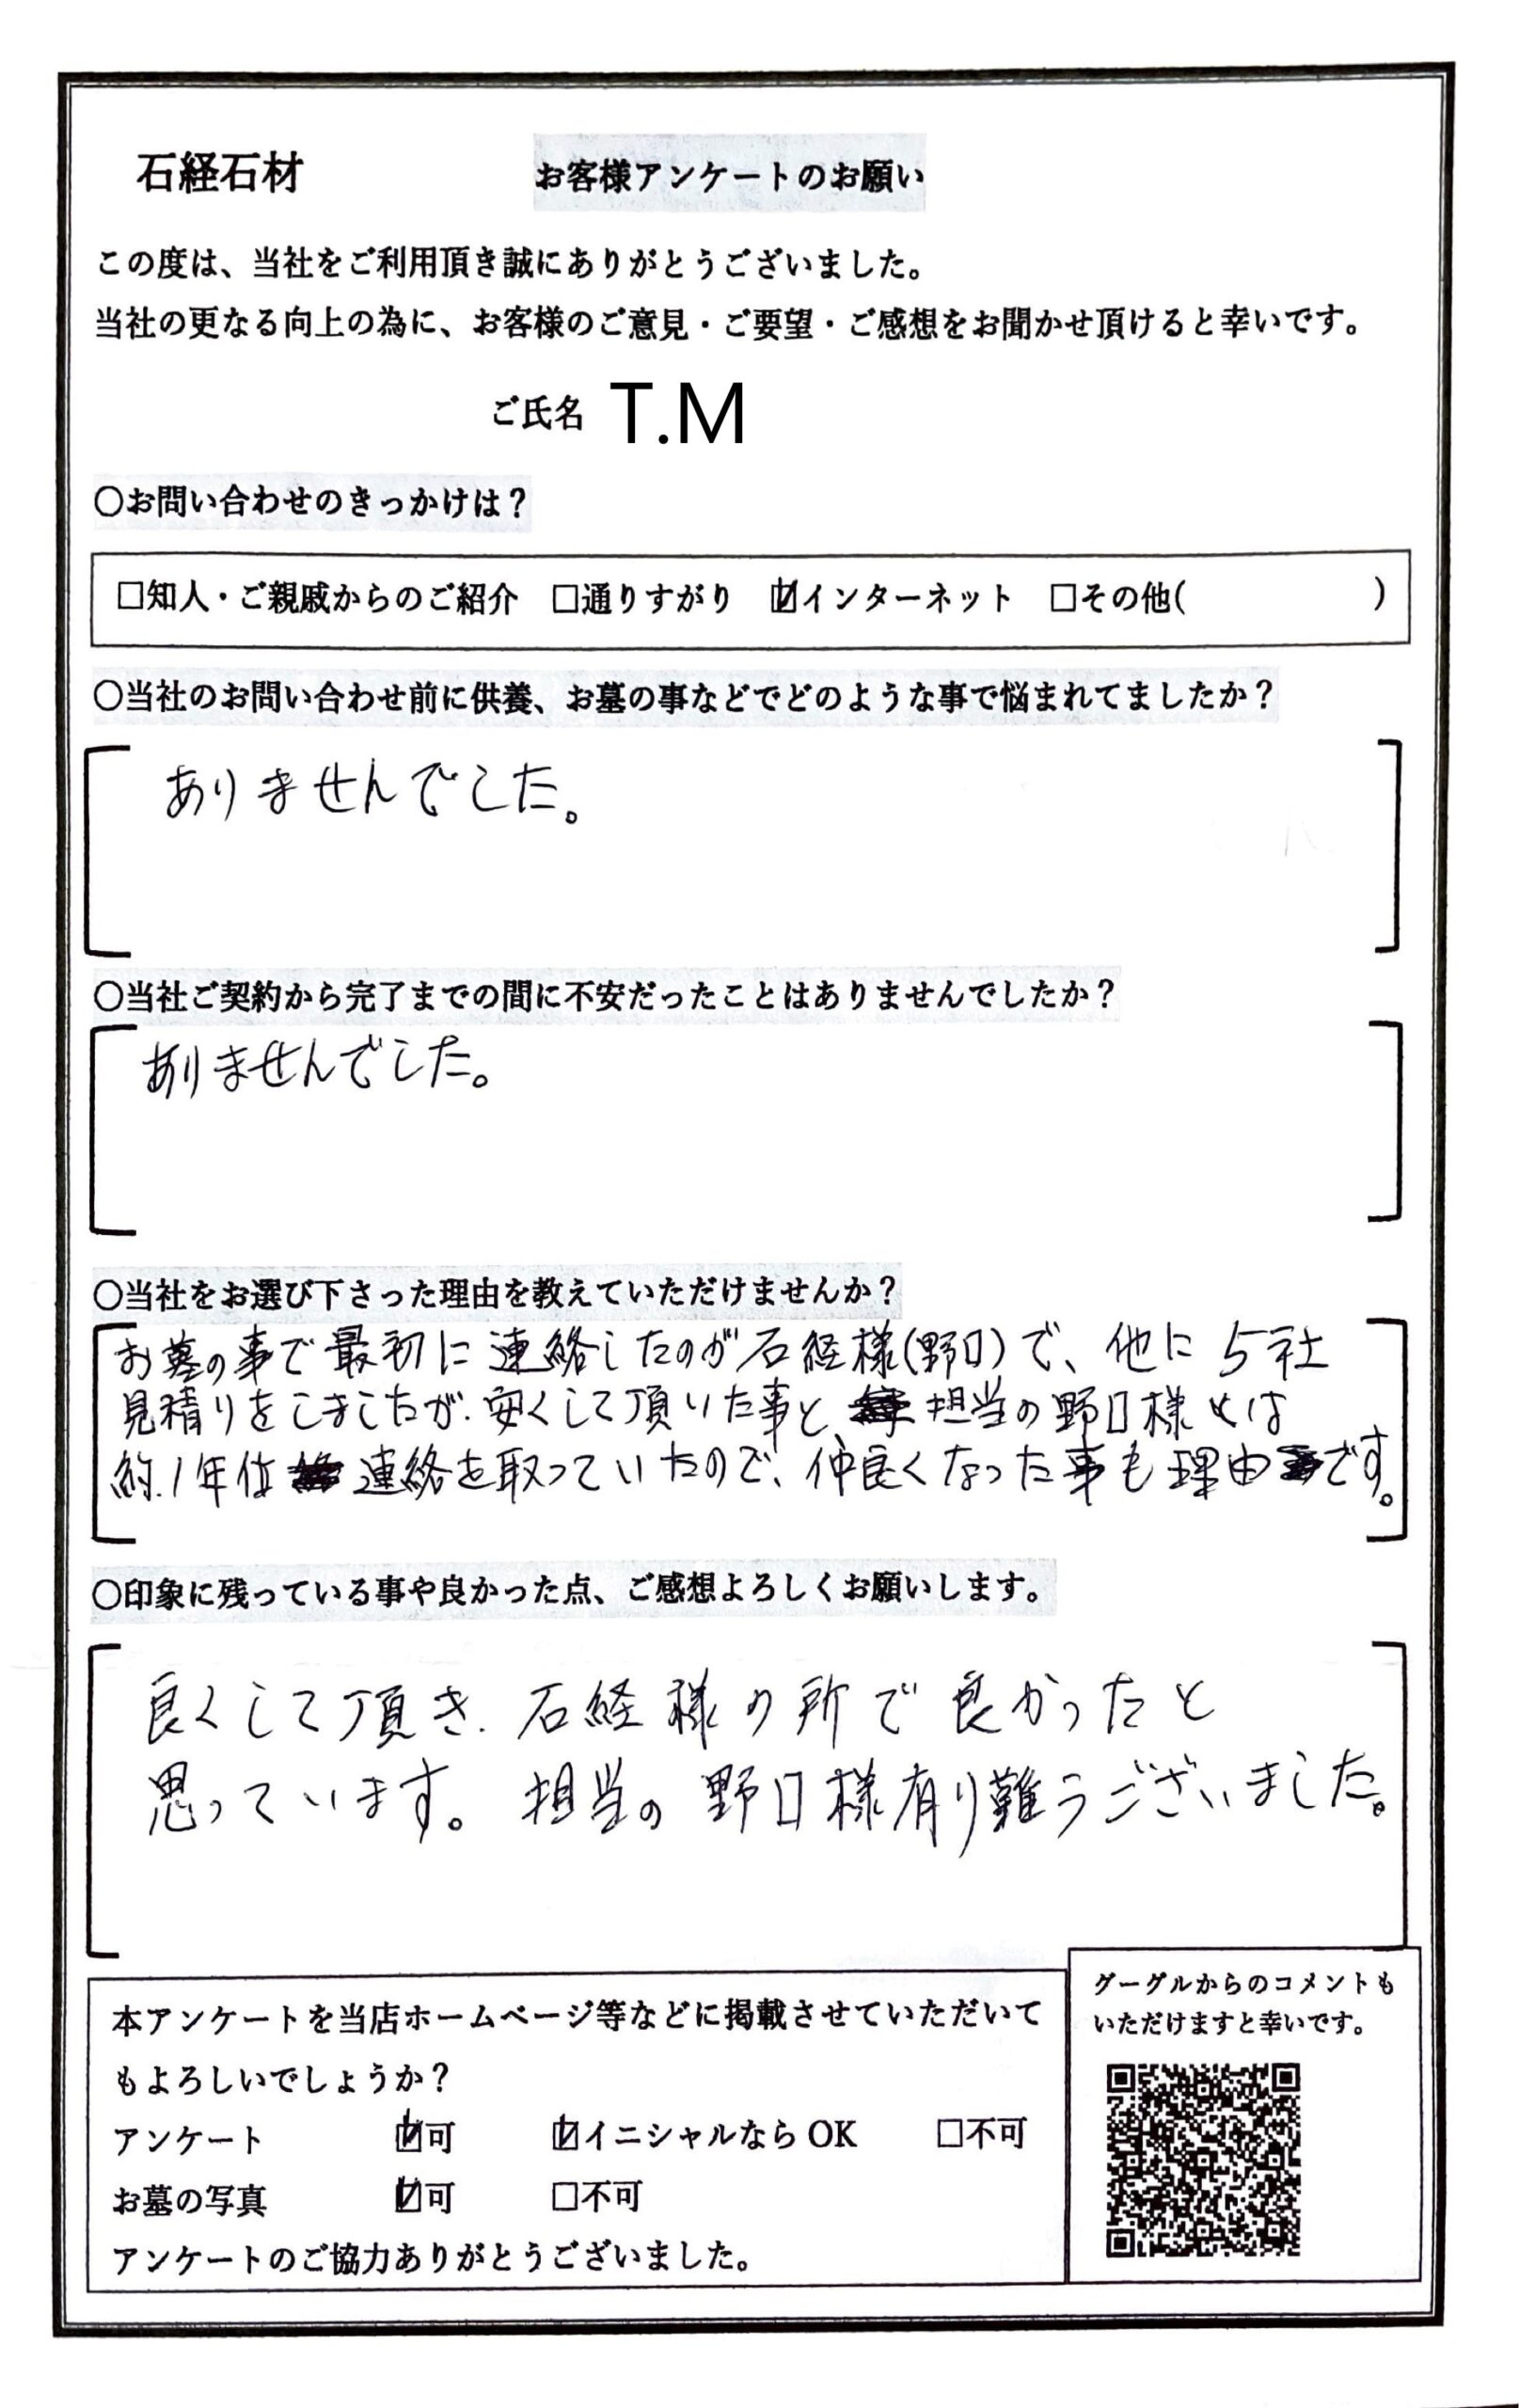 石経石材 お客様アンケートのお願い
この度は、当社をご利用頂き誠にありがとうございました。
当社の更なる向上の為に、お客様のご意見・ご要望・ご感想をお聞かせ頂けると幸いです。
ご氏名 T.M
○お問い合わせのきっかけは？
□知人・ご親戚からのご紹介 □通りすがり ☑インターネット □その他( )
○当社のお問い合わせ前に供養、お墓の事などでどのような事で悩まれてましたか？
ありませんでした。
○当社ご契約から完了までの間に不安だったことはありませんでしたか？
ありませんでした。
○当社をお選び下さった理由を教えていただけませんか？
お墓の事で最初に連絡したのが石経様(野口)で、他に5社
見積りをしましたが、安くして頂いた事と、担当の野口様とは
約、1年位連絡を取っていたので、仲良くなった事も理由です。
○印象に残っている事や良かった点、ご感想よろしくお願いします。
良くして頂き、石経様の所で良かったと
思っています。担当の野口様有り難うございました。
本アンケートを当店ホームページ等などに掲載させていただいて
もよろしいでしょうか？
アンケート ☑可 ☑イニシャルなら OK □不可
お墓の写真 ☑可 □不可
アンケートのご協力ありがとうございました。
グーグルからのコメントも
いただけますと幸いです。